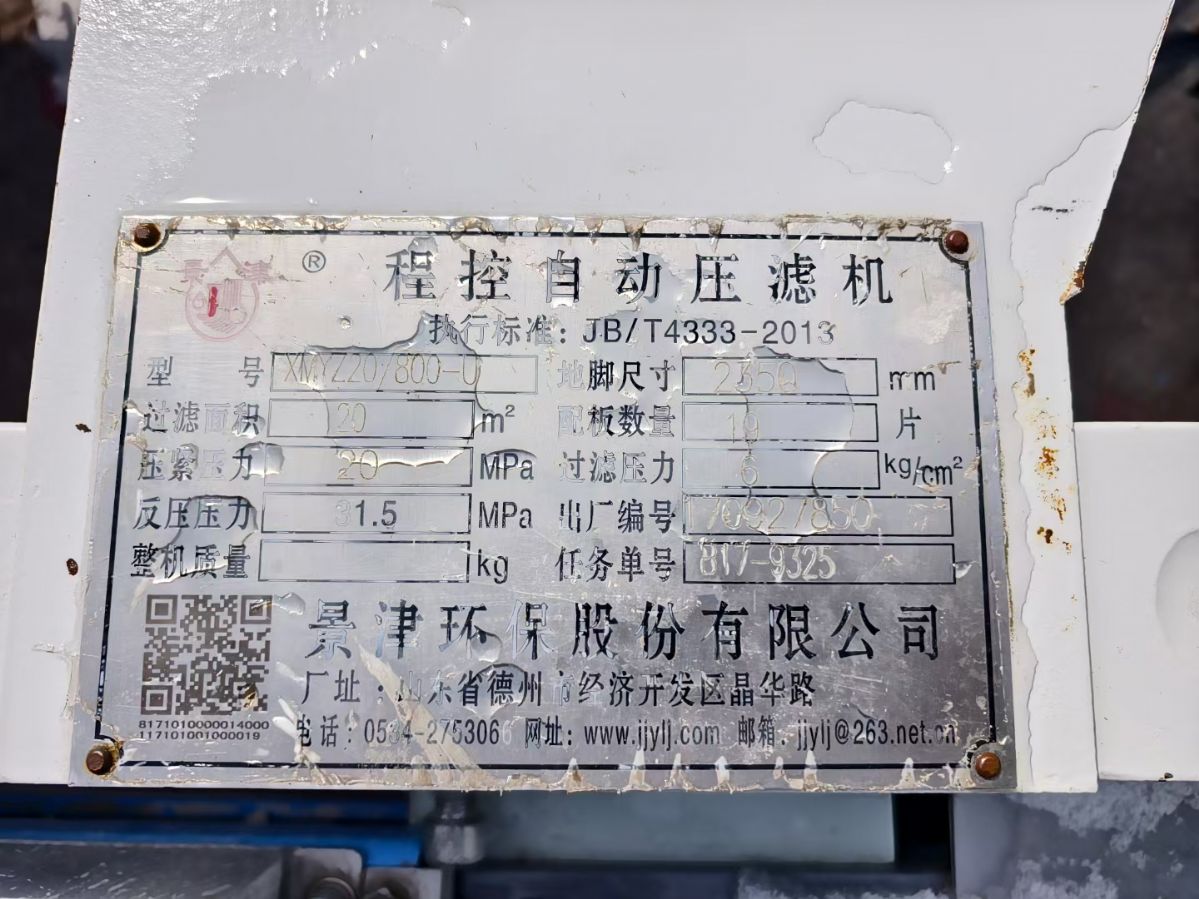 景津
® 程控自动压滤机
执行标准：JB/T4333-2013
型号 XMYZ20/800-U 地脚尺寸 2350 mm
过滤面积 20 m² 配板数量 19 片
压紧压力 20 MPa 过滤压力 6 kg/cm²
反压压力 31.5 MPa 出厂编号 170927850
整机质量 kg 任务单号 B17-9325
景津环保股份有限公司
厂址：山东省德州市经济开发区晶华路
8171010000014000
117101001000019
电话：0534-2753066 网址：www.jjylj.com 邮箱：jjylj@263.net.cn